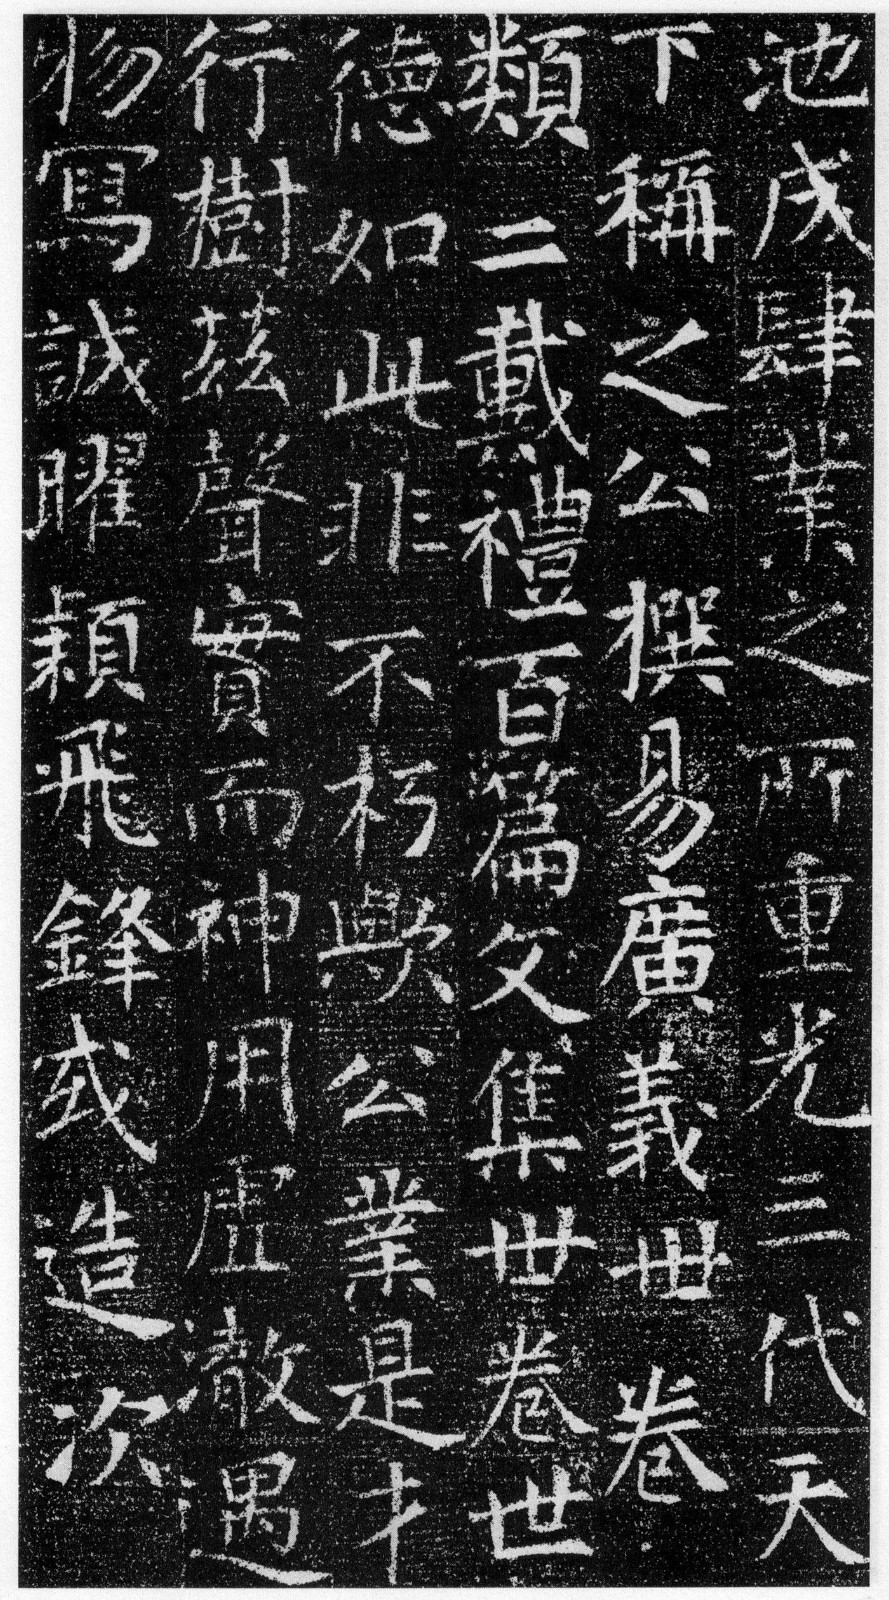 池成肆業之所重光三代天
下稱之公撰易廣義卌卷
類二戴禮百篇文集卅卷世
德如此非不朽歟公業是才
行樹茲聲實而神用虛澈遇
物寫誠曜穎飛鋒或造次